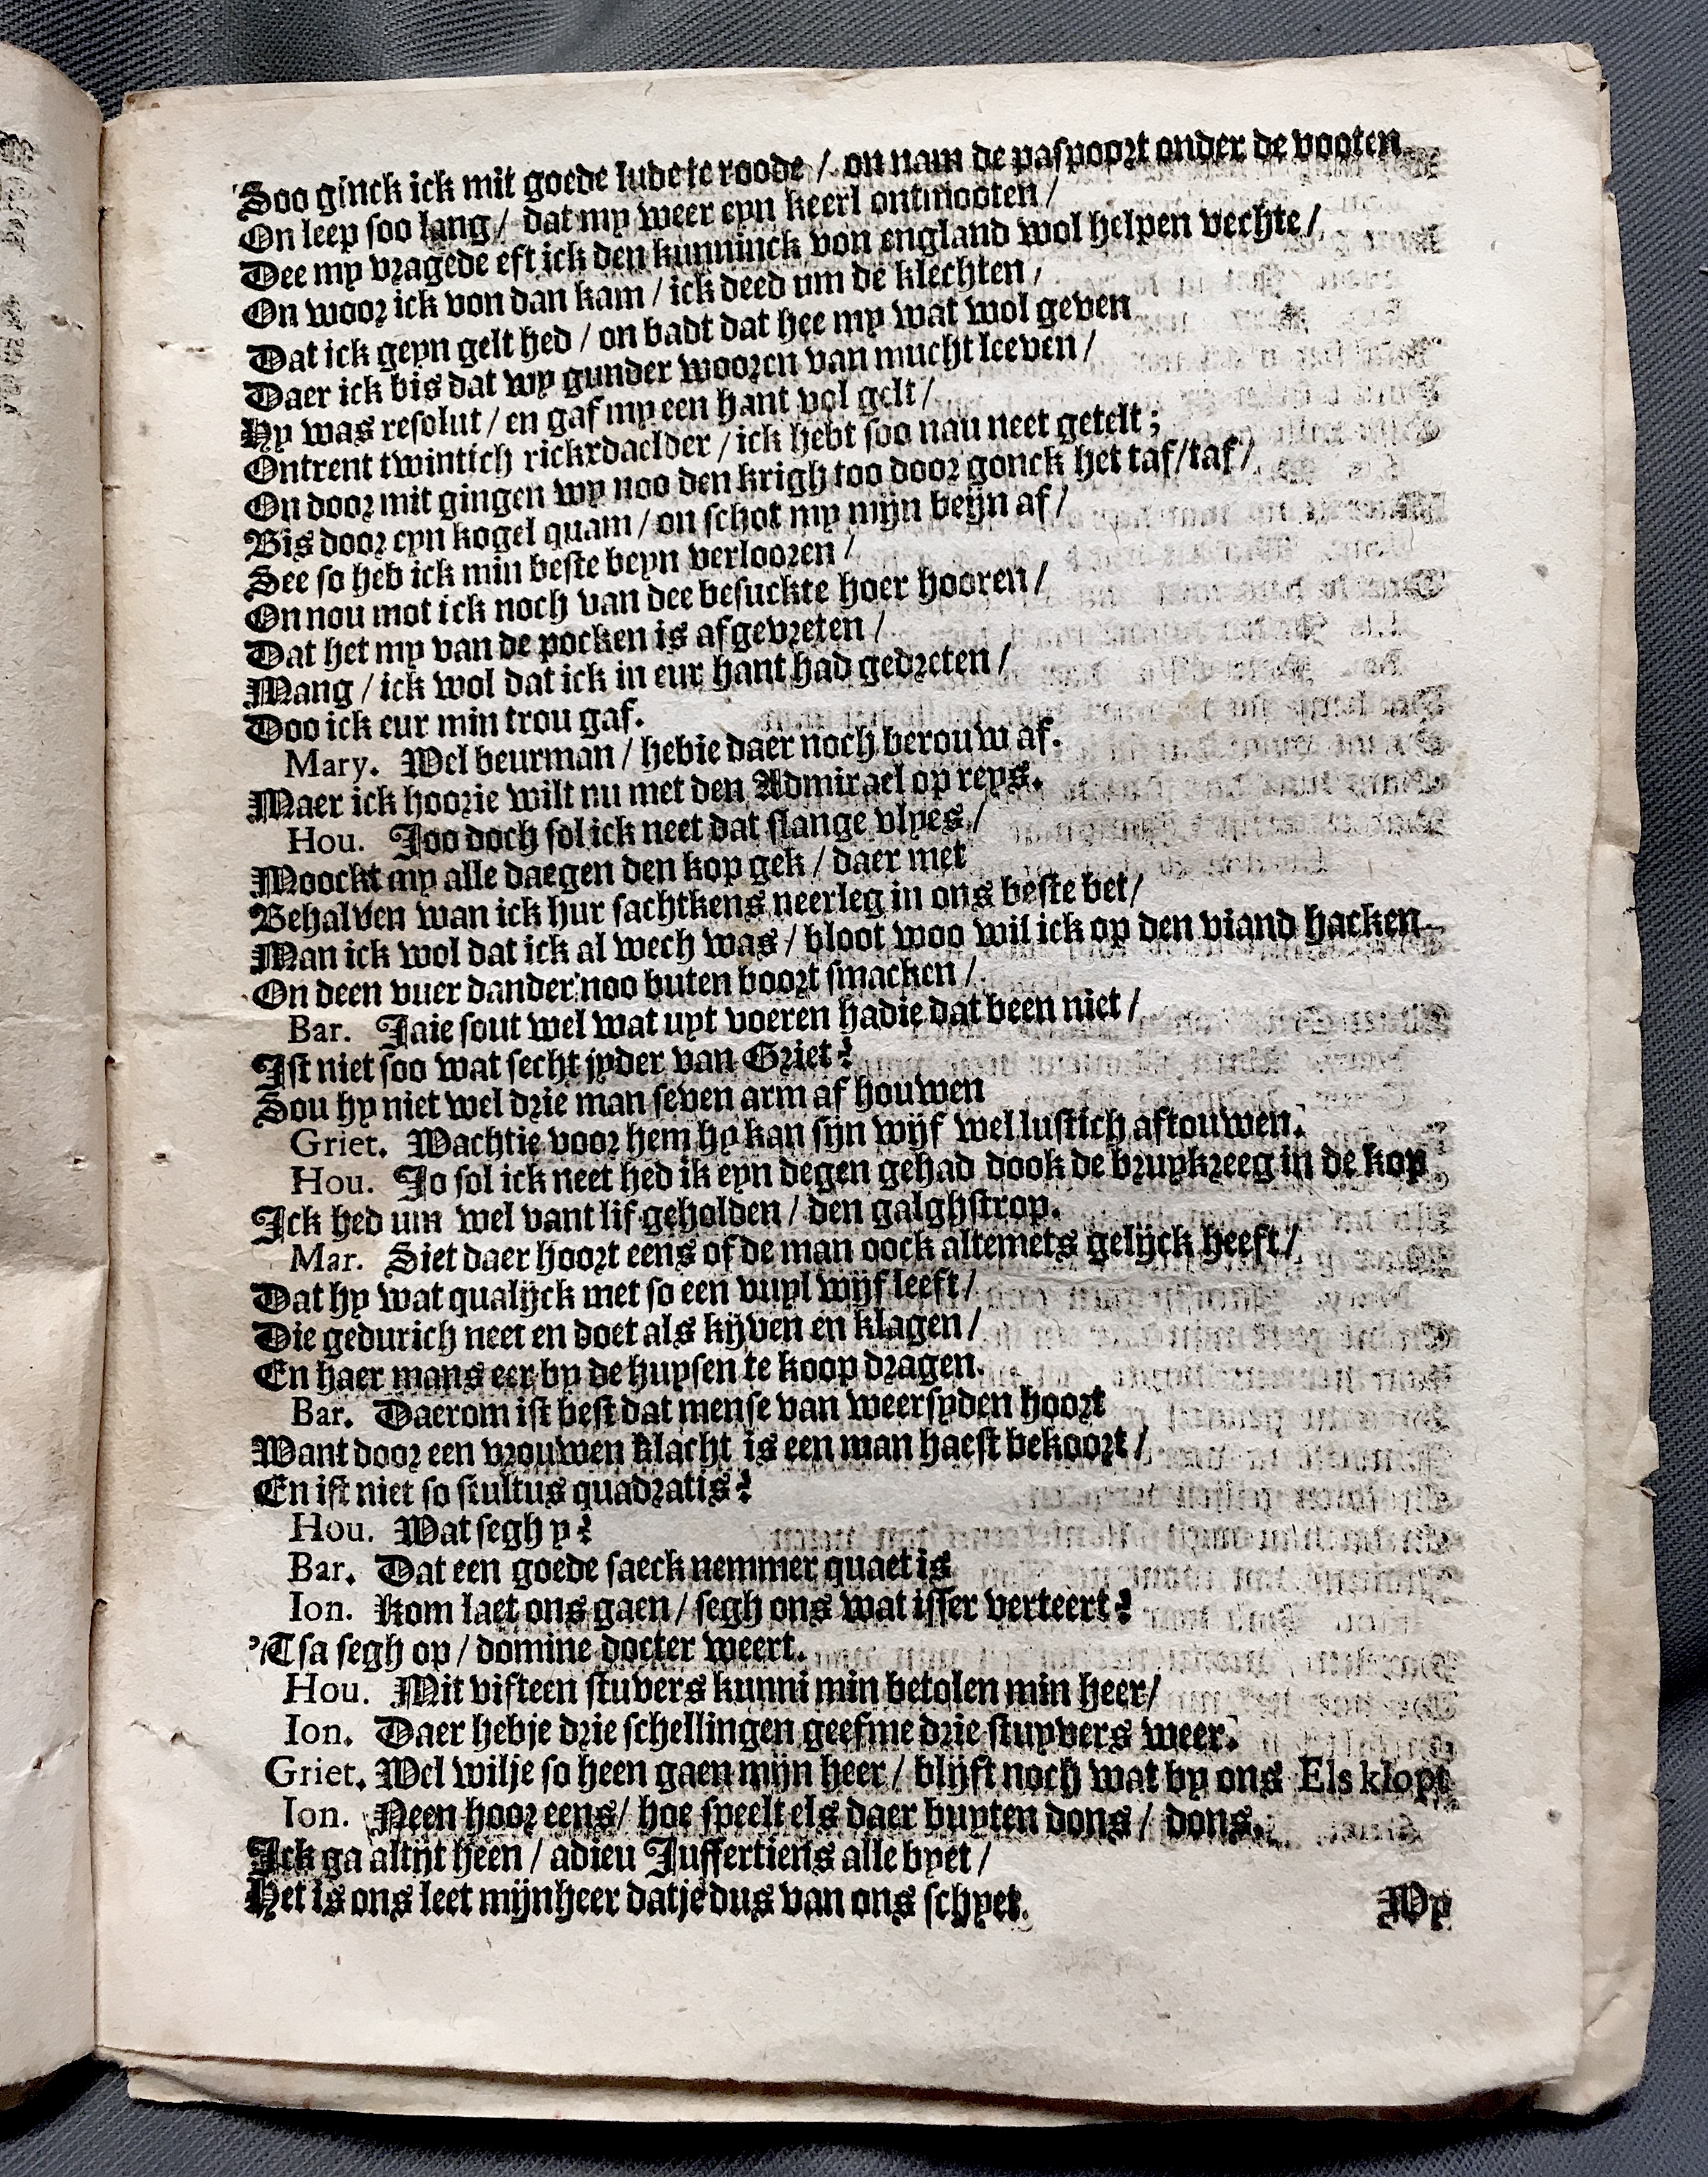 Soo ginck ick mit goede lude te roode / on nam de paspoort onder de vooten
On leep soo lang / dat my weer eyn keerl ontmooten /
Dee my vragede eft ick den kunninck von england wol helpen vechte /
On woor ick von dan kam / ick deed um de klechten /
Dat ick geyn gelt hed / on badt dat hee my wat wol geven
Daer ick bis dat wy gunder wooren van mucht leeven /
Hy was resolut / en gaf my een hant vol gelt /
Ontrent twintich rickxdaelder / ick hebt soo nau neet getelt ;
On door mit gingen wy noo den krigh too door gonck het taf/taf /
Bis door eyn kogel quam / on schot my mijn beijn af /
See so heb ick min beste beyn verlooren /
On nou mot ick noch van dee besuckte hoer hooren /
Dat het my van de pocken is afgevreten /
Mang / ick wol dat ick in eur hant had gedreten /
Doo ick eur min trou gaf.
Mary. Wel beurman / hebie daer noch berouw af.
Maer ick hoorie wilt nu met den Admirael op reys.
Hou. Joo doch sol ick neet dat slange vlyes /
Moockt my alle daegen den kop gek / daer met
Behalven wan ick hur sachtkens neerleg in ons beste bet /
Man ick wol dat ick al wech was / bloot woo wil ick op den viand hacken
On deen vuer dander noo buten boort smacken /
Bar. Jaie sout wel wat uyt voeren hadie dat been niet /
Ist niet soo wat secht jyder van Griet?
Sou hy niet wel drie man seven arm af houwen
Griet. Wachtie voor hem hy kan sijn wijf wel lustich aftouwen.
Hou. Jo sol ick neet hed ik eyn degen gehad dook de bruykreeg in de kop
Ick hed um wel vant lif geholden / den galghstrop.
Mar. Siet daer hoort eens of de man oock altemets gelijck heeft /
Dat hy wat qualijck met so een vuyl wijf leeft /
Die gedurich neet en doet als kijven en klagen /
En haer mans eer by de huysen te koop dragen.
Bar. Daerom ist best dat mense van weersyden hoort
Want door een vrouwen klacht is een man haest bekoort /
En ist niet so stultus quadratis?
Hou. Wat segh y?
Bar. Dat een goede saeck nemmer quaet is
Ion. Kom laet ons gaen / segh ons wat isser verteert?
'Tsa segh op / domine docter weert.
Hou. Mit vifteen stuvers kunni min betolen min heer /
Ion. Daer hebje drie schellingen geefme drie stuyvers weer.
Griet. Wel wilje so heen gaen mijn heer / blijft noch wat by ons Els klopt
Ion. Neen hoor eens / hoe speelt els daer buyten dons / dons.
Ick ga altijt heen / adieu Juffertiens alle byet /
Het is ons leet mijnheer datje dus van ons schyet.
Wy